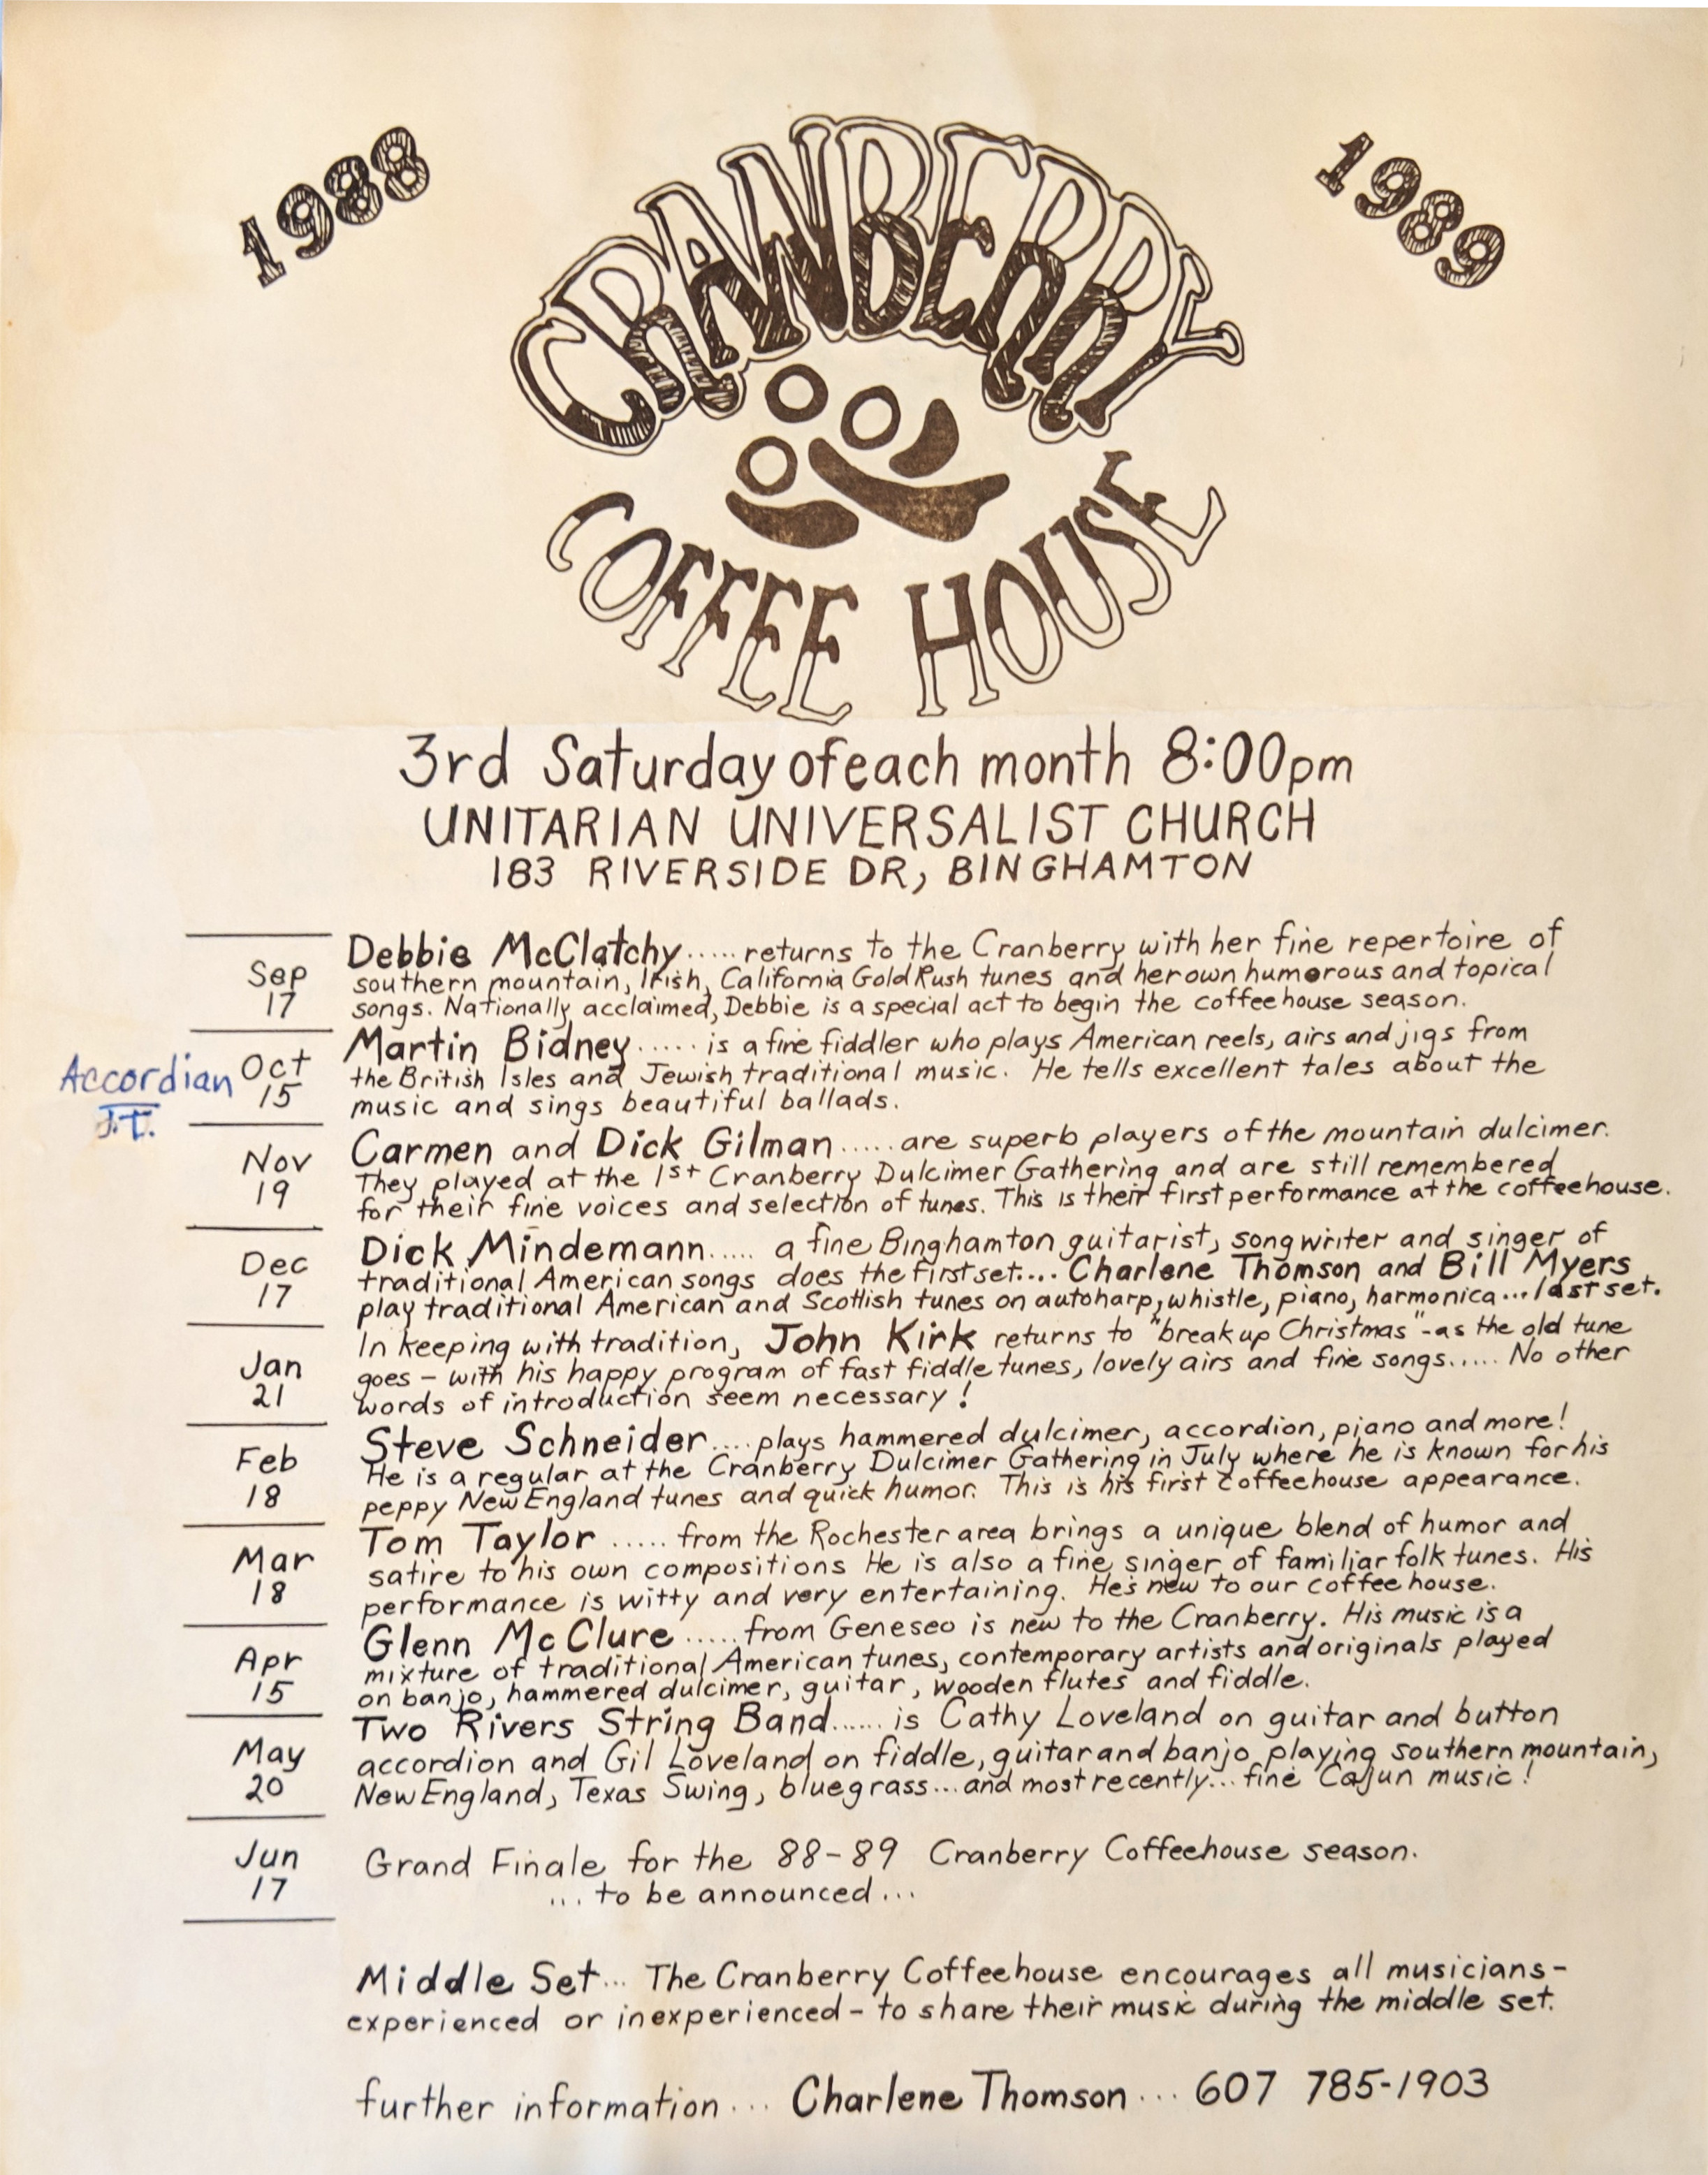 1988
1989
CRANBERRY
COFFEE HOUSE
3rd Saturday of each month 8:00pm
UNITARIAN UNIVERSALIST CHURCH
183 RIVERSIDE DR, BINGHAMTON
Sep
17
Debbie McClatchy..... returns to the Cranberry with her fine repertoire of
southern mountain, Irish, California Gold Rush tunes and her own humorous and topical
songs. Nationally acclaimed, Debbie is a special act to begin the coffeehouse season.
Accordian
J.T.
Oct
15
Martin Bidney..... is a fine fiddler who plays American reels, airs and jigs from
the British Isles and Jewish traditional music. He tells excellent tales about the
music and sings beautiful ballads.
Nov
19
Carmen and Dick Gilman..... are superb players of the mountain dulcimer.
They played at the 1st Cranberry Dulcimer Gathering and are still remembered
for their fine voices and selection of tunes. This is their first performance at the coffeehouse.
Dec
17
Dick Mindemann..... a fine Binghamton guitarist, songwriter and singer of
traditional American songs does the first set.... Charlene Thomson and Bill Myers
play traditional American and Scottish tunes on autoharp, whistle, piano, harmonica...last set.
Jan
21
In keeping with tradition, John Kirk returns to "break up Christmas"-as the old tune
goes - with his happy program of fast fiddle tunes, lovely airs and fine songs..... No other
words of introduction seem necessary!
Feb
18
Steve Schneider.... plays hammered dulcimer, accordion, piano and more!
He is a regular at the Cranberry Dulcimer Gathering in July where he is known for his
peppy New England tunes and quick humor. This is his first coffeehouse appearance.
Mar
18
Tom Taylor ..... from the Rochester area brings a unique blend of humor and
satire to his own compositions He is also a fine singer of familiar folk tunes. His
performance is witty and very entertaining. He's new to our coffeehouse.
Apr
15
Glenn McClure ..... from Geneseo is new to the Cranberry. His music is a
mixture of traditional American tunes, contemporary artists and originals played
on banjo, hammered dulcimer, guitar, wooden flutes and fiddle.
May
20
Two Rivers String Band...... is Cathy Loveland on guitar and button
accordion and Gil Loveland on fiddle, guitar and banjo playing southern mountain,
New England, Texas Swing, bluegrass...and most recently... fine Cajun music!
Jun
17
Grand Finale for the 88-89 Cranberry Coffeehouse season.
... to be announced...
Middle Set... The Cranberry Coffeehouse encourages all musicians-
experienced or inexperienced - to share their music during the middle set.
further information... Charlene Thomson... 607 785-1903